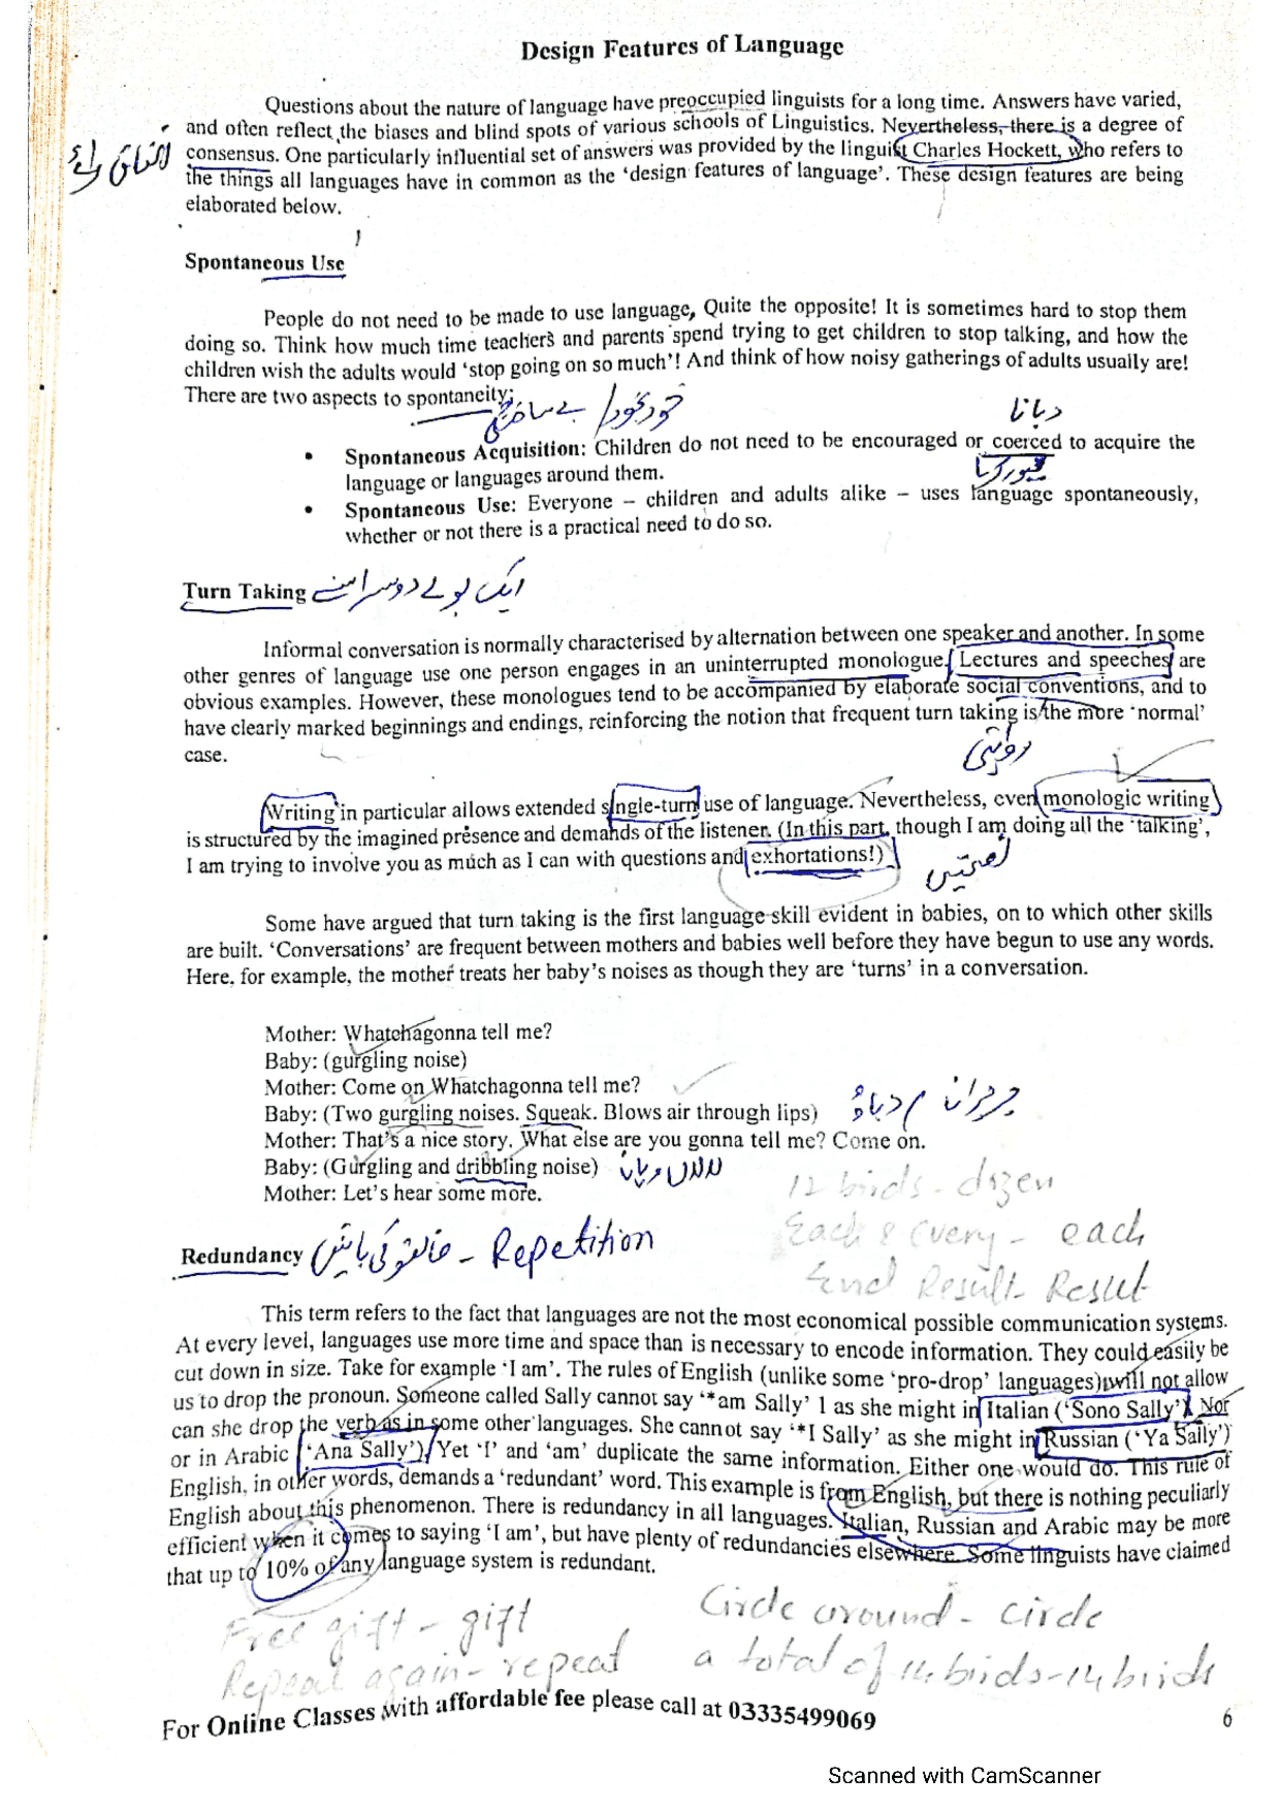 Design Features of Language
Questions about the nature of language have preoccupied linguists for a long time. Answers have varied,
and often reflect the biases and blind spots of various schools of Linguistics. Nevertheless, there is a degree of
اتفاق رائے
consensus. One particularly influential set of answers was provided by the linguist Charles Hockett, who refers to
the things all languages have in common as the 'design features of language'. These design features are being
elaborated below.
Spontaneous Use
People do not need to be made to use language, Quite the opposite! It is sometimes hard to stop them
doing so. Think how much time teachers and parents spend trying to get children to stop talking, and how the
children wish the adults would 'stop going on so much'! And think of how noisy gatherings of adults usually are!
There are two aspects to spontaneity:
بے ساختگی / خود بخود
دبانا
• Spontaneous Acquisition: Children do not need to be encouraged or coerced to acquire the
language or languages around them.
مجبور کرنا
• Spontaneous Use: Everyone – children and adults alike – uses language spontaneously,
whether or not there is a practical need to do so.
Turn Taking ایک بولے دوسرا سنے
Informal conversation is normally characterised by alternation between one speaker and another. In some
other genres of language use one person engages in an uninterrupted monologue. Lectures and speeches are
obvious examples. However, these monologues tend to be accompanied by elaborate social conventions, and to
have clearly marked beginnings and endings, reinforcing the notion that frequent turn taking is the more 'normal'
case.
Writing in particular allows extended single-turn use of language. Nevertheless, even monologic writing
is structured by the imagined presence and demands of the listener. (In this part, though I am doing all the 'talking',
I am trying to involve you as much as I can with questions and exhortations!)
نصیحتیں
Some have argued that turn taking is the first language skill evident in babies, on to which other skills
are built. 'Conversations' are frequent between mothers and babies well before they have begun to use any words.
Here, for example, the mother treats her baby's noises as though they are 'turns' in a conversation.
Mother: Whatchagonna tell me?
Baby: (gurgling noise)
Mother: Come on Whatchagonna tell me?
Baby: (Two gurgling noises. Squeak. Blows air through lips)
Mother: That's a nice story. What else are you gonna tell me? Come on.
Baby: (Gurgling and dribbling noise)
Mother: Let's hear some more.
12 birds - dozen
Each & every - each
End Result - Result
Redundancy فالتو کی باتیں - Repetition
This term refers to the fact that languages are not the most economical possible communication systems.
At every level, languages use more time and space than is necessary to encode information. They could easily be
cut down in size. Take for example 'I am'. The rules of English (unlike some 'pro-drop' languages) will not allow
us to drop the pronoun. Someone called Sally cannot say '*am Sally' 1 as she might in Italian ('Sono Sally'). Nor
can she drop the verb as in some other languages. She cannot say '*I Sally' as she might in Russian ('Ya Sally')
or in Arabic ('Ana Sally'). Yet 'I' and 'am' duplicate the same information. Either one would do. This rule of
English, in other words, demands a 'redundant' word. This example is from English, but there is nothing peculiarly
English about this phenomenon. There is redundancy in all languages. Italian, Russian and Arabic may be more
efficient when it comes to saying 'I am', but have plenty of redundancies elsewhere. Some linguists have claimed
that up to 10% of any language system is redundant.
Free gift - gift
Circle around - circle
Repeat again - repeat
a total of 14 birds - 14 birds
For Online Classes with affordable fee please call at 03335499069
6
Scanned with CamScanner